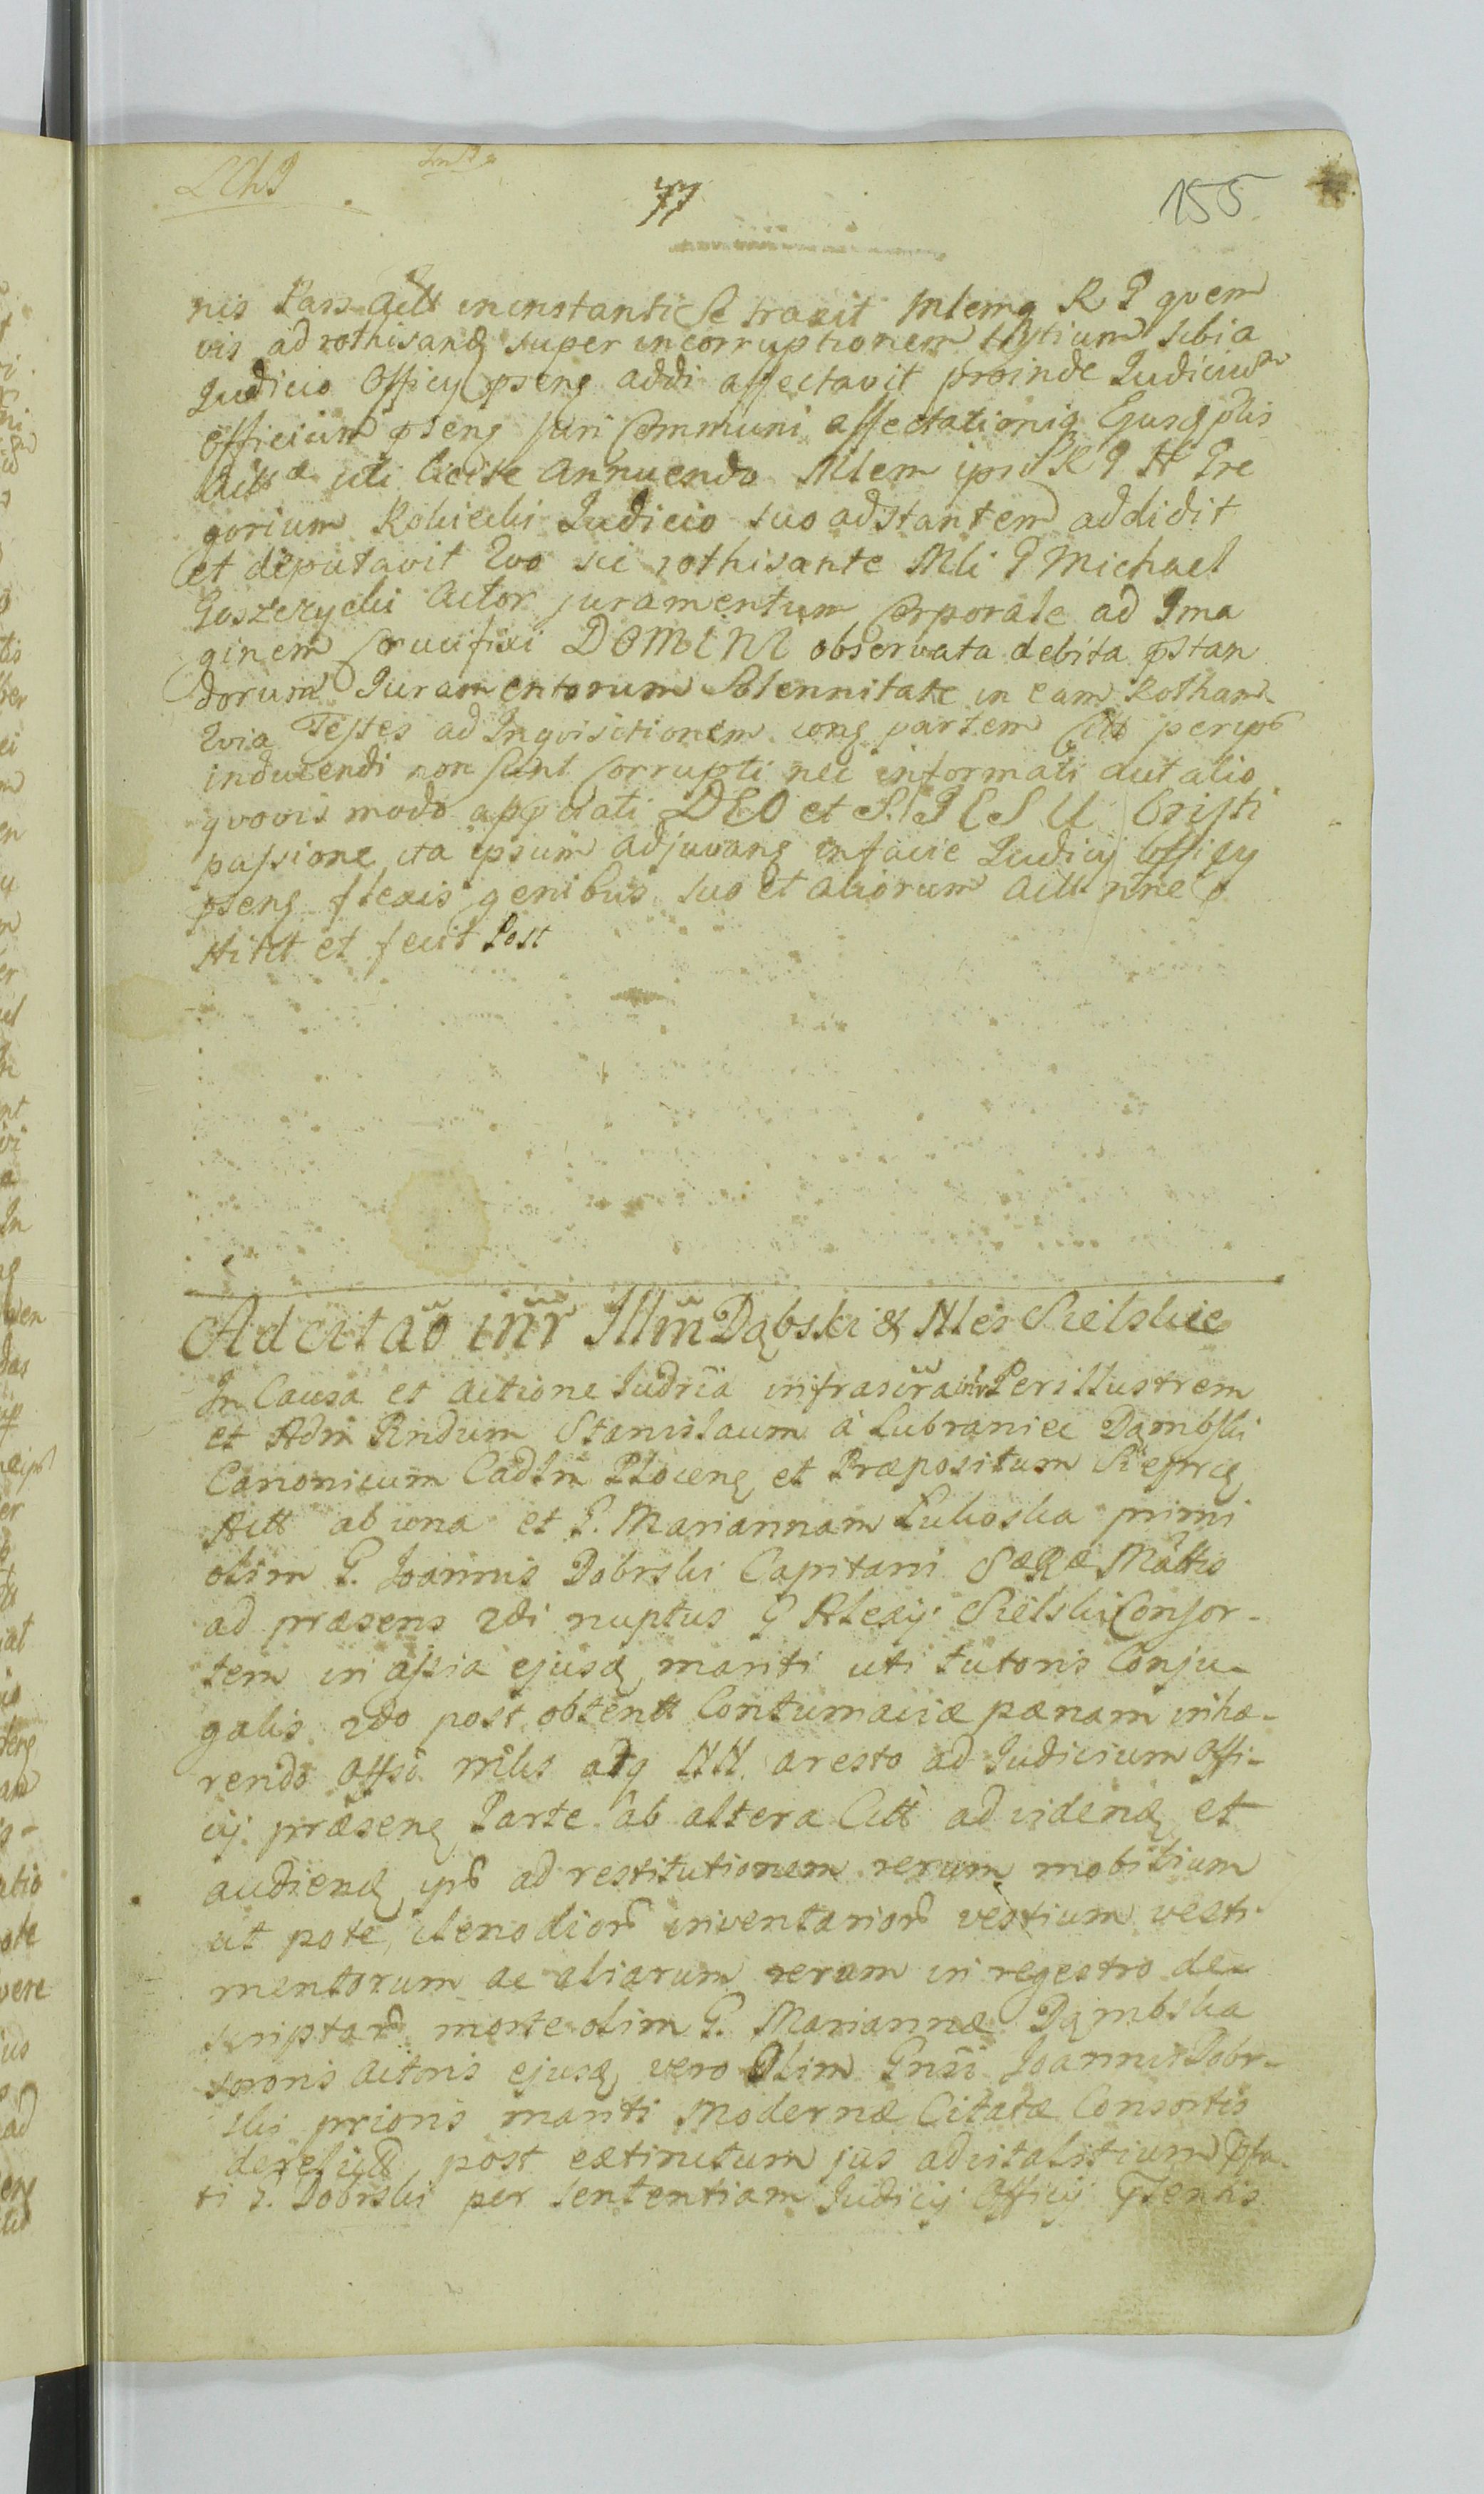 77
155
nis Pars Actt in instanti se traxit Mlemq R P quem
vis ad rothisandu super incorruptionem testium sibi a
Judicio Officij pseng addi affectavit proinde Judicium
officium pseng juri communi affectationiq Ejusq ptis
uti licite annuendo Mlem ipsi R P H Gre
gorium Robiecki Judicio suo adstantem addidit
et deputavit Quo sic rothisante Mli P Michael
Goszczycki Actor juramentum corporale ad Ima
ginem Crucifixi DOMINI observata debita pstan
dorum Juramentorum Solennitate in eam Rotham
Quia Testes ad Inquisitionem cong partem Citt per ipsu
inducendi non sunt corrupti nec informati aut alio
quovis modo DEO et S. JESU Cristi
passione ita ipsum adjuvang in facie Judicij Officij
pseng flexis genibus suo et aliorum Actt nne p
stitit et fecit Post
Ad citao inr Illm Dąbski & Nles Sielskie
In Causa et actione Judria infrascra intr Perillustrem
et Adm Rndum Stanislaum à Lubraniec Dąmbski
Canonicum Cadlm Plocens et Præpositum
Actt ab una et G. Mariannam Lukoska primi
olim G. Joannis Dobrski Capitani SæRæ Mattis
ad præsens 2di nuptus G Alexij Sielski Consor-
tem in assia ejusd mariti uti tutoris Conju-
galis 2do post obtentt Contumaciæ pænam inhæ-
rendo offso mlis adq NN. aresto ad Judicium Offi-
cij præseng Parte ab altera Citt ad vidend et
audiend ipso ad restitutionem rerum mobilium
ut pote, clenodior inventarior vestium vesti-
mentorum ac aliarum rerum in regestro de-
scriptar morte olim G. Mariannæ Dąmbska
sororis actoris ejusd vero Olim Gnsi Joannis Dobr-
ski prioris mariti Modernæ Citatæ Consortis
derelict post extinctum jus advitalitium pfa-
ti G. Dobrski per sententiam Judicij Officij Psentis